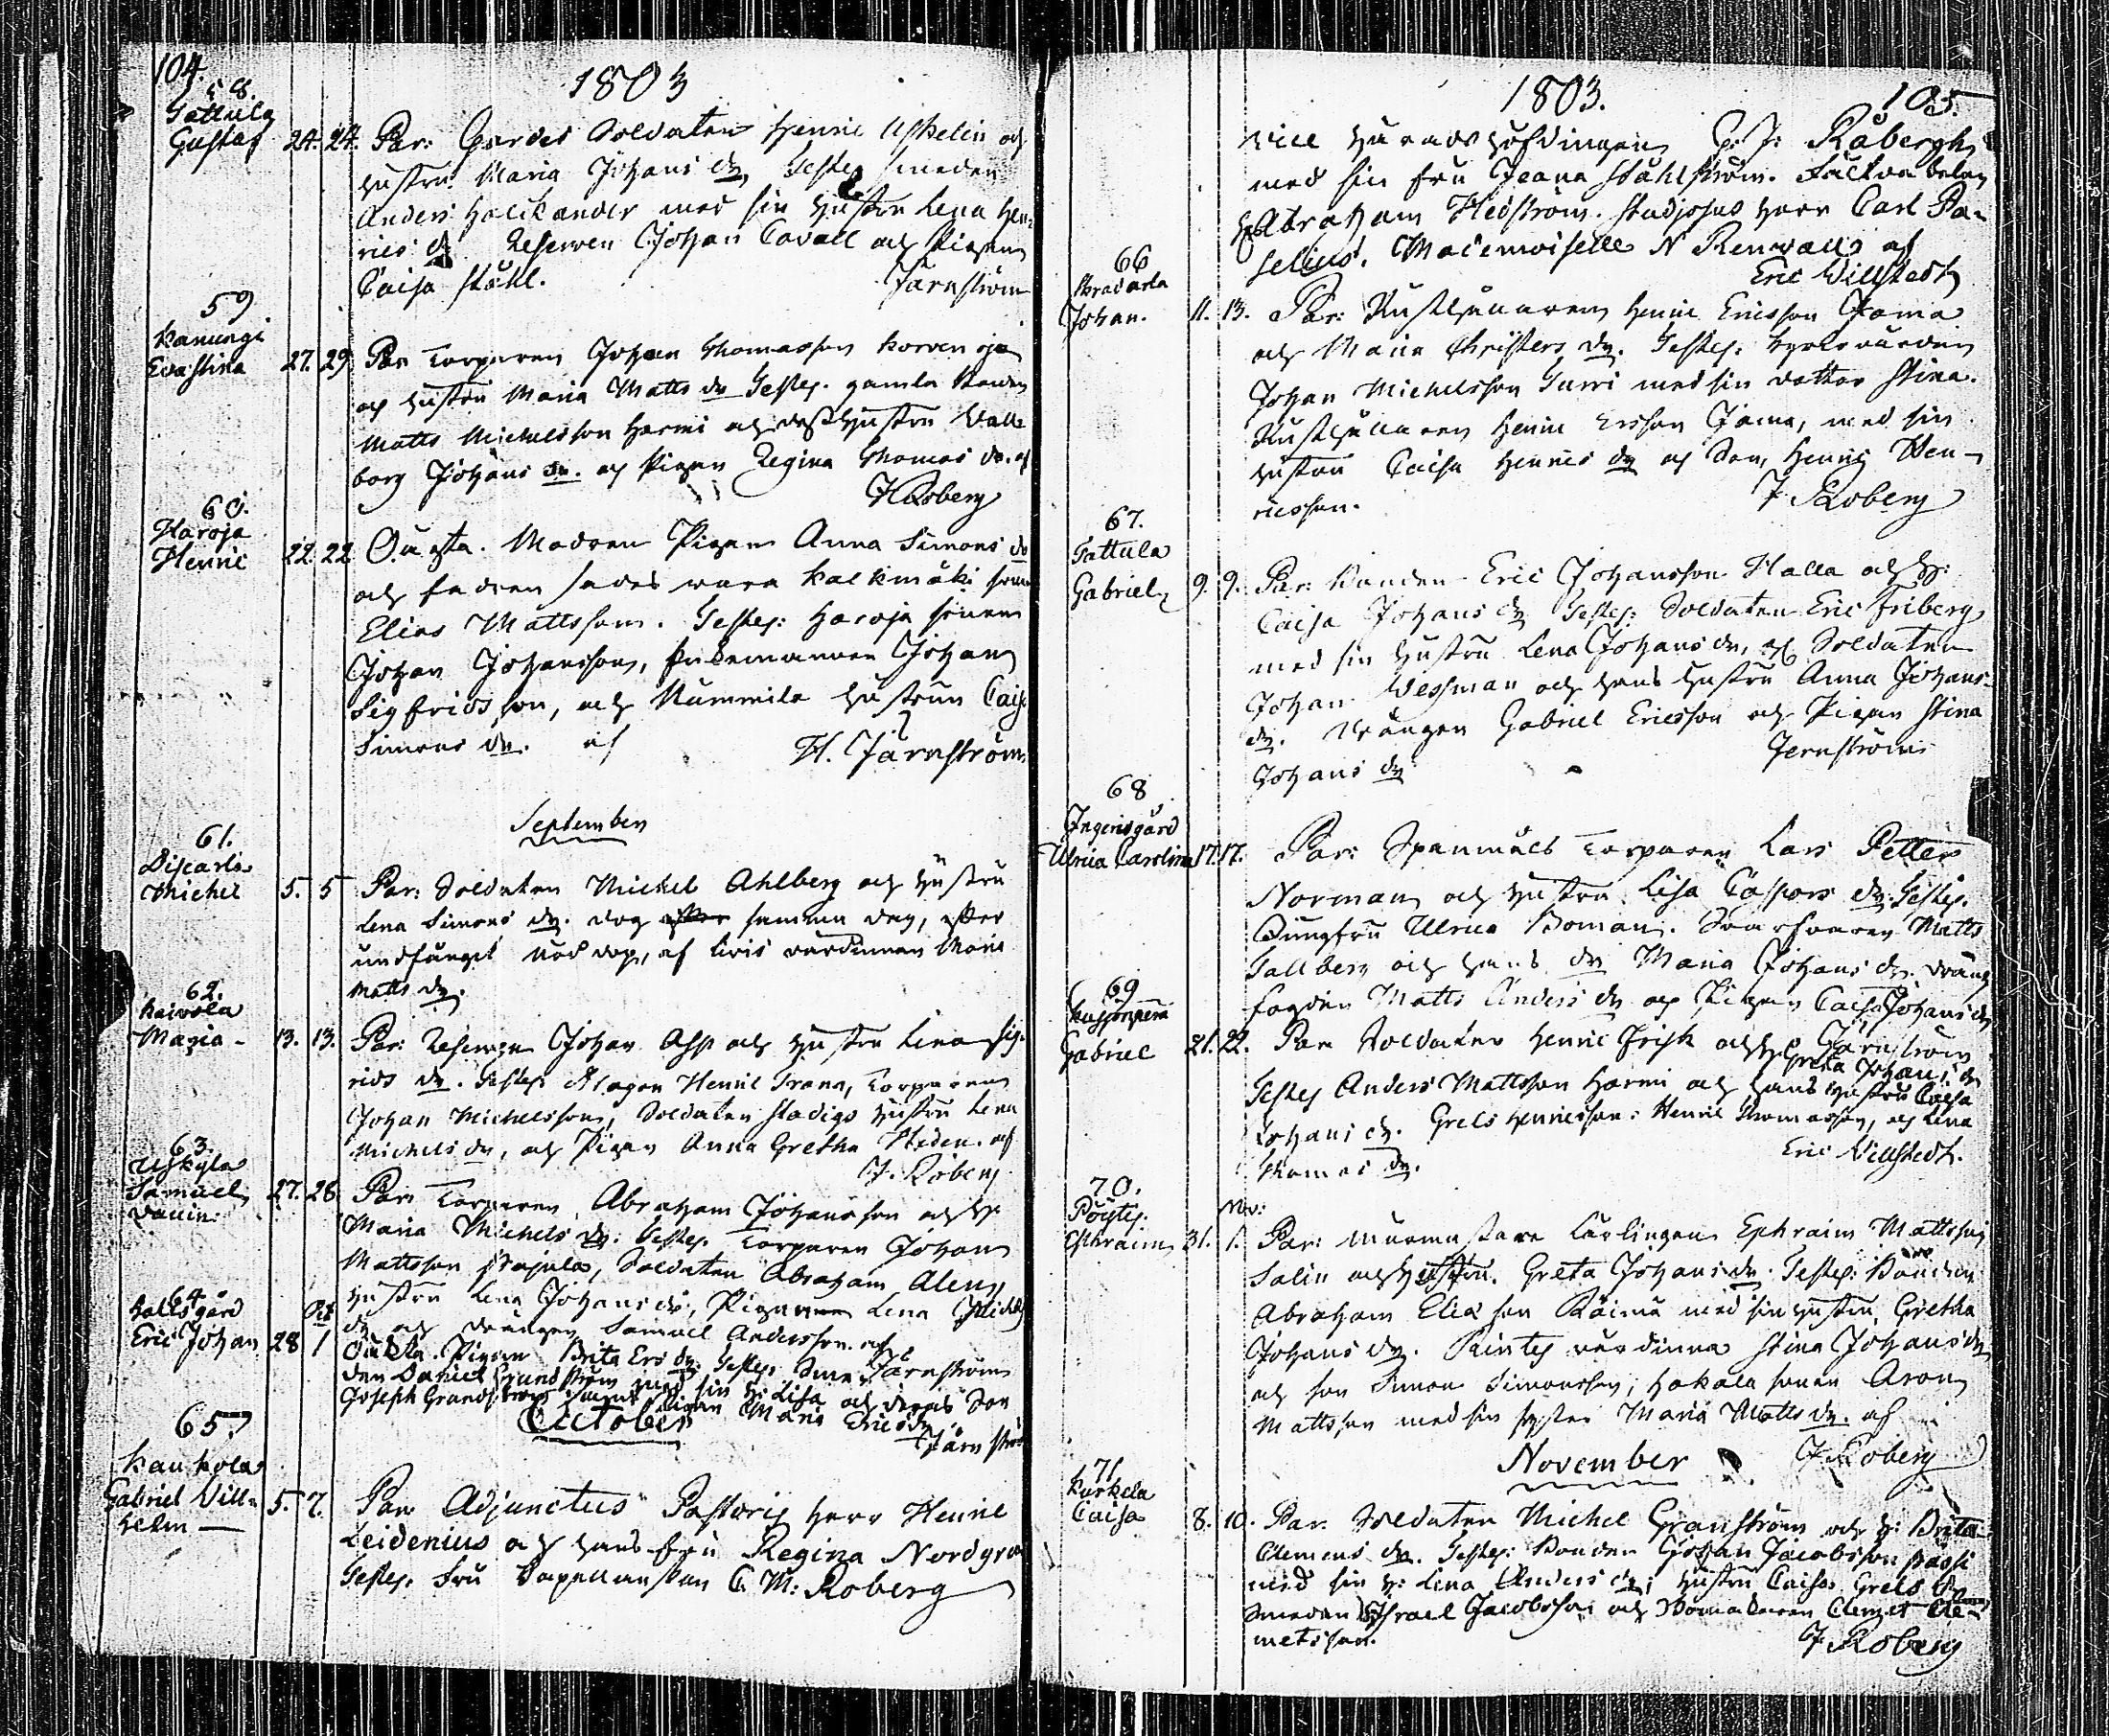 104.
1803
58.
Gattula
Gustaf 24. 24. Par: Gardes Soldaten Henric Askelin och
hustru Maria Johans dr, Testes smeden
Anders Holckander med sin hustru Lena Hen-
rics dr Reserven Johan Cavall och Pigan
Caisa Ståhl. Järnström
59.
Kanungi
Eva Stina 27. 29. Par Torparen Johan Thomasson Korven oja
och hustru Maria Matts dr Testes. gamla Bonden
Matts Michelsson Hormi och dess hustru Wall-
borg Johans dr. och Pigan Regina Thomas dr. af
J Roberg
60.
Haroja
Henric 22. 22 Oägta. Modren Pigan Anna Simons dr
och fadren sades wara Kalkmäki sonen
Elias Mattsson. Testes: Haroja sonen
Johan Johansson, Johan
Sigfridsson, och Nummila hustrun Caisa
Simons dr. af H. Järnström
September
61.
Discarls
Michel 5. 5 Par: Soldaten Michel Ahlberg och hustru
Lena Simons dr. dog samma dag, efter
undfånget nöd dop, af värdinnan Maria
Matts dr.
62.
Kaivola
Maria - 13. 13. Par: Reserven Johan Asp och hustru Lena Sig-
frids dr. Testes Henric Trana, Torparen
Johan Michelsson, Soldaten Stadigs hustru Lena
Michels dr, och Pigan Anna Gretha Heden. af
J. Roberg
63.
Uskyla
Samuel 27. 28. Par: Torparen Abraham Johansson och h:
Maria Michels dr: Testes Torparen Johan
Mattsson Soldaten Abraham Alens
hustru Lena Johans dr, Pigan Lena Michels
dr och drängen Samuel Andersson. af
Järnström
64.
Hallsgård Oct
Eric Johan 28 1 Oäkta. Pigan Brita Ers dr Testes. Sme-
den Daniel Grundström med sin h: Lisa och deras Son
Joseph Grundström samt Pigan Maria Erics dr
Järnström
October
65.
Kaukola
Gabriel Vill- 5. 7. Par Adjunctus Pastoris Herr Henric
helm — Leidenius och hans fru Regina Nordgren
Testes. Fru Capellanskan C. M: Roberg
1803. 105.
vice häradshöfdingen C. J: Råbergh
med sin fru Jeana Ståhlström.
Abraham Hedström. Studjosus Herr Carl Pa-
selius. Mademoiselle N Renvalls af
Eric Villstedt
66
Johan. 11. 13. Par: Rusthållaren Henric Ericsson Jama
och Maria Christers dr. Testes. Kyrkvärden
Johan Michelsson Surri med sin dotter Stina.
Rusthållaren Henric Ersson Jama, med sin
hustru Caisa Henrics dr och Son, Henric Hen-
ricsson. J Roberg
67.
Gattula
Gabriel 9. 9. Par: Bonden Eric Johansson Halla och h:
Caisa Johans dr Testes: Soldaten Eric Friberg
med sin hustru Lena Johans dr, och Soldaten
Johan Wessman och hans hustru Anna Johans
dr. Drängen Gabriel Ericsson och Pigan Stina
Johans dr Jernström
68
Ingerisgård
Ulrica Carolina 17. 17. Par: Spanmåls Torparen Lars Petter
Norman och hustru Lisa Caspers dr. Testes.
Jungfru Ulrica Boman. Svarfvaren Matts
Tallberg och hans dr Maria Johans dr. dräng
fogden Matts Anders dr och Pigan Caisa Johans dr
Järnström
69
Gabriel 21. 22. Par Soldaten Henric Frisk och h: Greta Johans dr
Testes Anders Mattsson Hormi och hans hustru Caisa
Johans dr. Grels Henricsson. Henric Thomasson, och Lena
Thomas dr. Eric Villstedt.
70.
Pöytis. Nov:
Ephraim 31. 1. Par: murmästare Lärlingen Ephraim Mattsson
Salin och hustru Greta Johans dr. Testes: Bonden
Abraham Eliasson Räimä med sin hustru Gretha
Johans dr. värdinna Stina Johans dr
och son Simon Simonsson, Hakala sonen Aron
Mattsson med sin syster Maria Matts dr. af
J Roberg
November
71
Kurkela
Caisa 8. 10. Par. Soldaten Michel Granström och h: Brita
Clemens dr. Testes: Bonden Johan Jacobsson Passi
med sin h: Lena Anders dr; hustru Caisa Grels dr
Smeden Israel Jacobsson och Clemet Cle-
metsson. J. Roberg